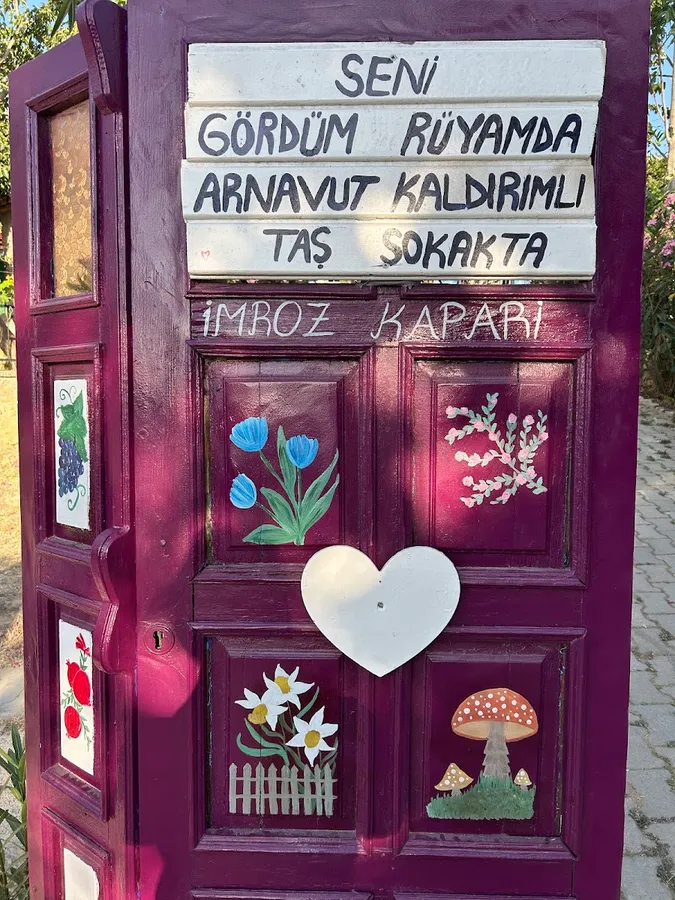 SENİ
GÖRDÜM RÜYAMDA
ARNAVUT KALDIRIMLI
TAŞ SOKAKTA
İMROZ KAPARİ